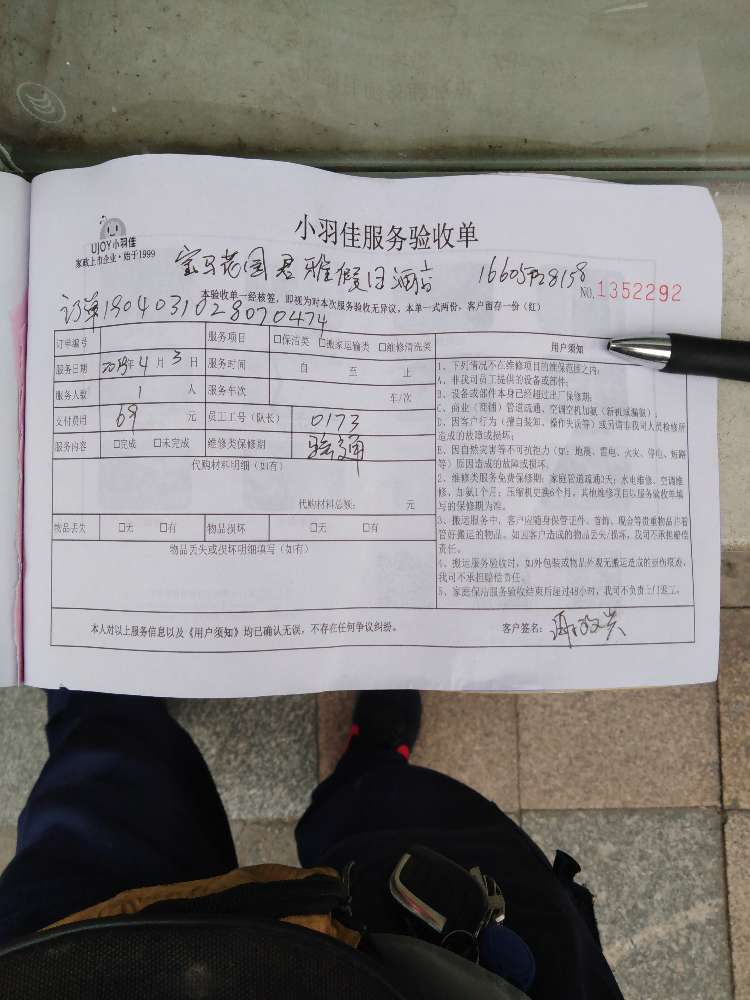 UJOY小羽佳
家政上市企业·始于1999
小羽佳服务验收单
宝马花园君雅假日酒店 16605928158
NO.1352292
本验收单一经核签，即视为对本次服务验收无异议，本单一式两份，客户留存一份（红）
订单1904031028070474
订单编号 服务项目 □保洁类 □搬家运输类 □维修清洗类
服务日期 2019年4月3日 服务时间 自 至 止
服务人数 1 人 服务车次 车/次
支付费用 69 元 员工工号（队长） 0173
服务内容 □完成 □未完成 维修类保修期
代购材料明细（如有）
代购材料总额： 元
物品丢失 □无 □有 物品损坏 □无 □有
物品丢失或损坏明细填写（如有）
用户须知
1、下列情况不在维修项目的维保范围之内：
A、非我司员工提供的设备或部件；
B、设备或部件本身已经超过出厂保修期；
C、商业（商铺）管道疏通、空调空机加氨（新机或漏氨）；
D、因客户行为（擅自装卸、操作失误等）或另请非我司人员检修所
造成的故障或损坏；
E、因自然灾害等不可抗力（如：地震、雷电、火灾、停电、短路
等）原因造成的故障或损坏。
2、维修类服务免费保修期：家庭管道疏通3天；水电维修、空调维
修、加氨1个月；压缩机更换6个月。其他维修项目以服务验收单填
写的保修期为准。
3、搬运服务中，客户应随身保管证件、首饰、现金等贵重物品并看
管好搬运的物品。如因客户造成的物品丢失/损坏，我司不承担赔偿
责任。
4、搬运服务验收时，如外包装或物品外观无搬运造成的损伤痕迹，
我司不承担赔偿责任。
5、家庭保洁服务验收结束后超过48小时，我司不负责上门返工。
本人对以上服务信息以及《用户须知》均已确认无误，不存在任何争议纠纷。 客户签名：